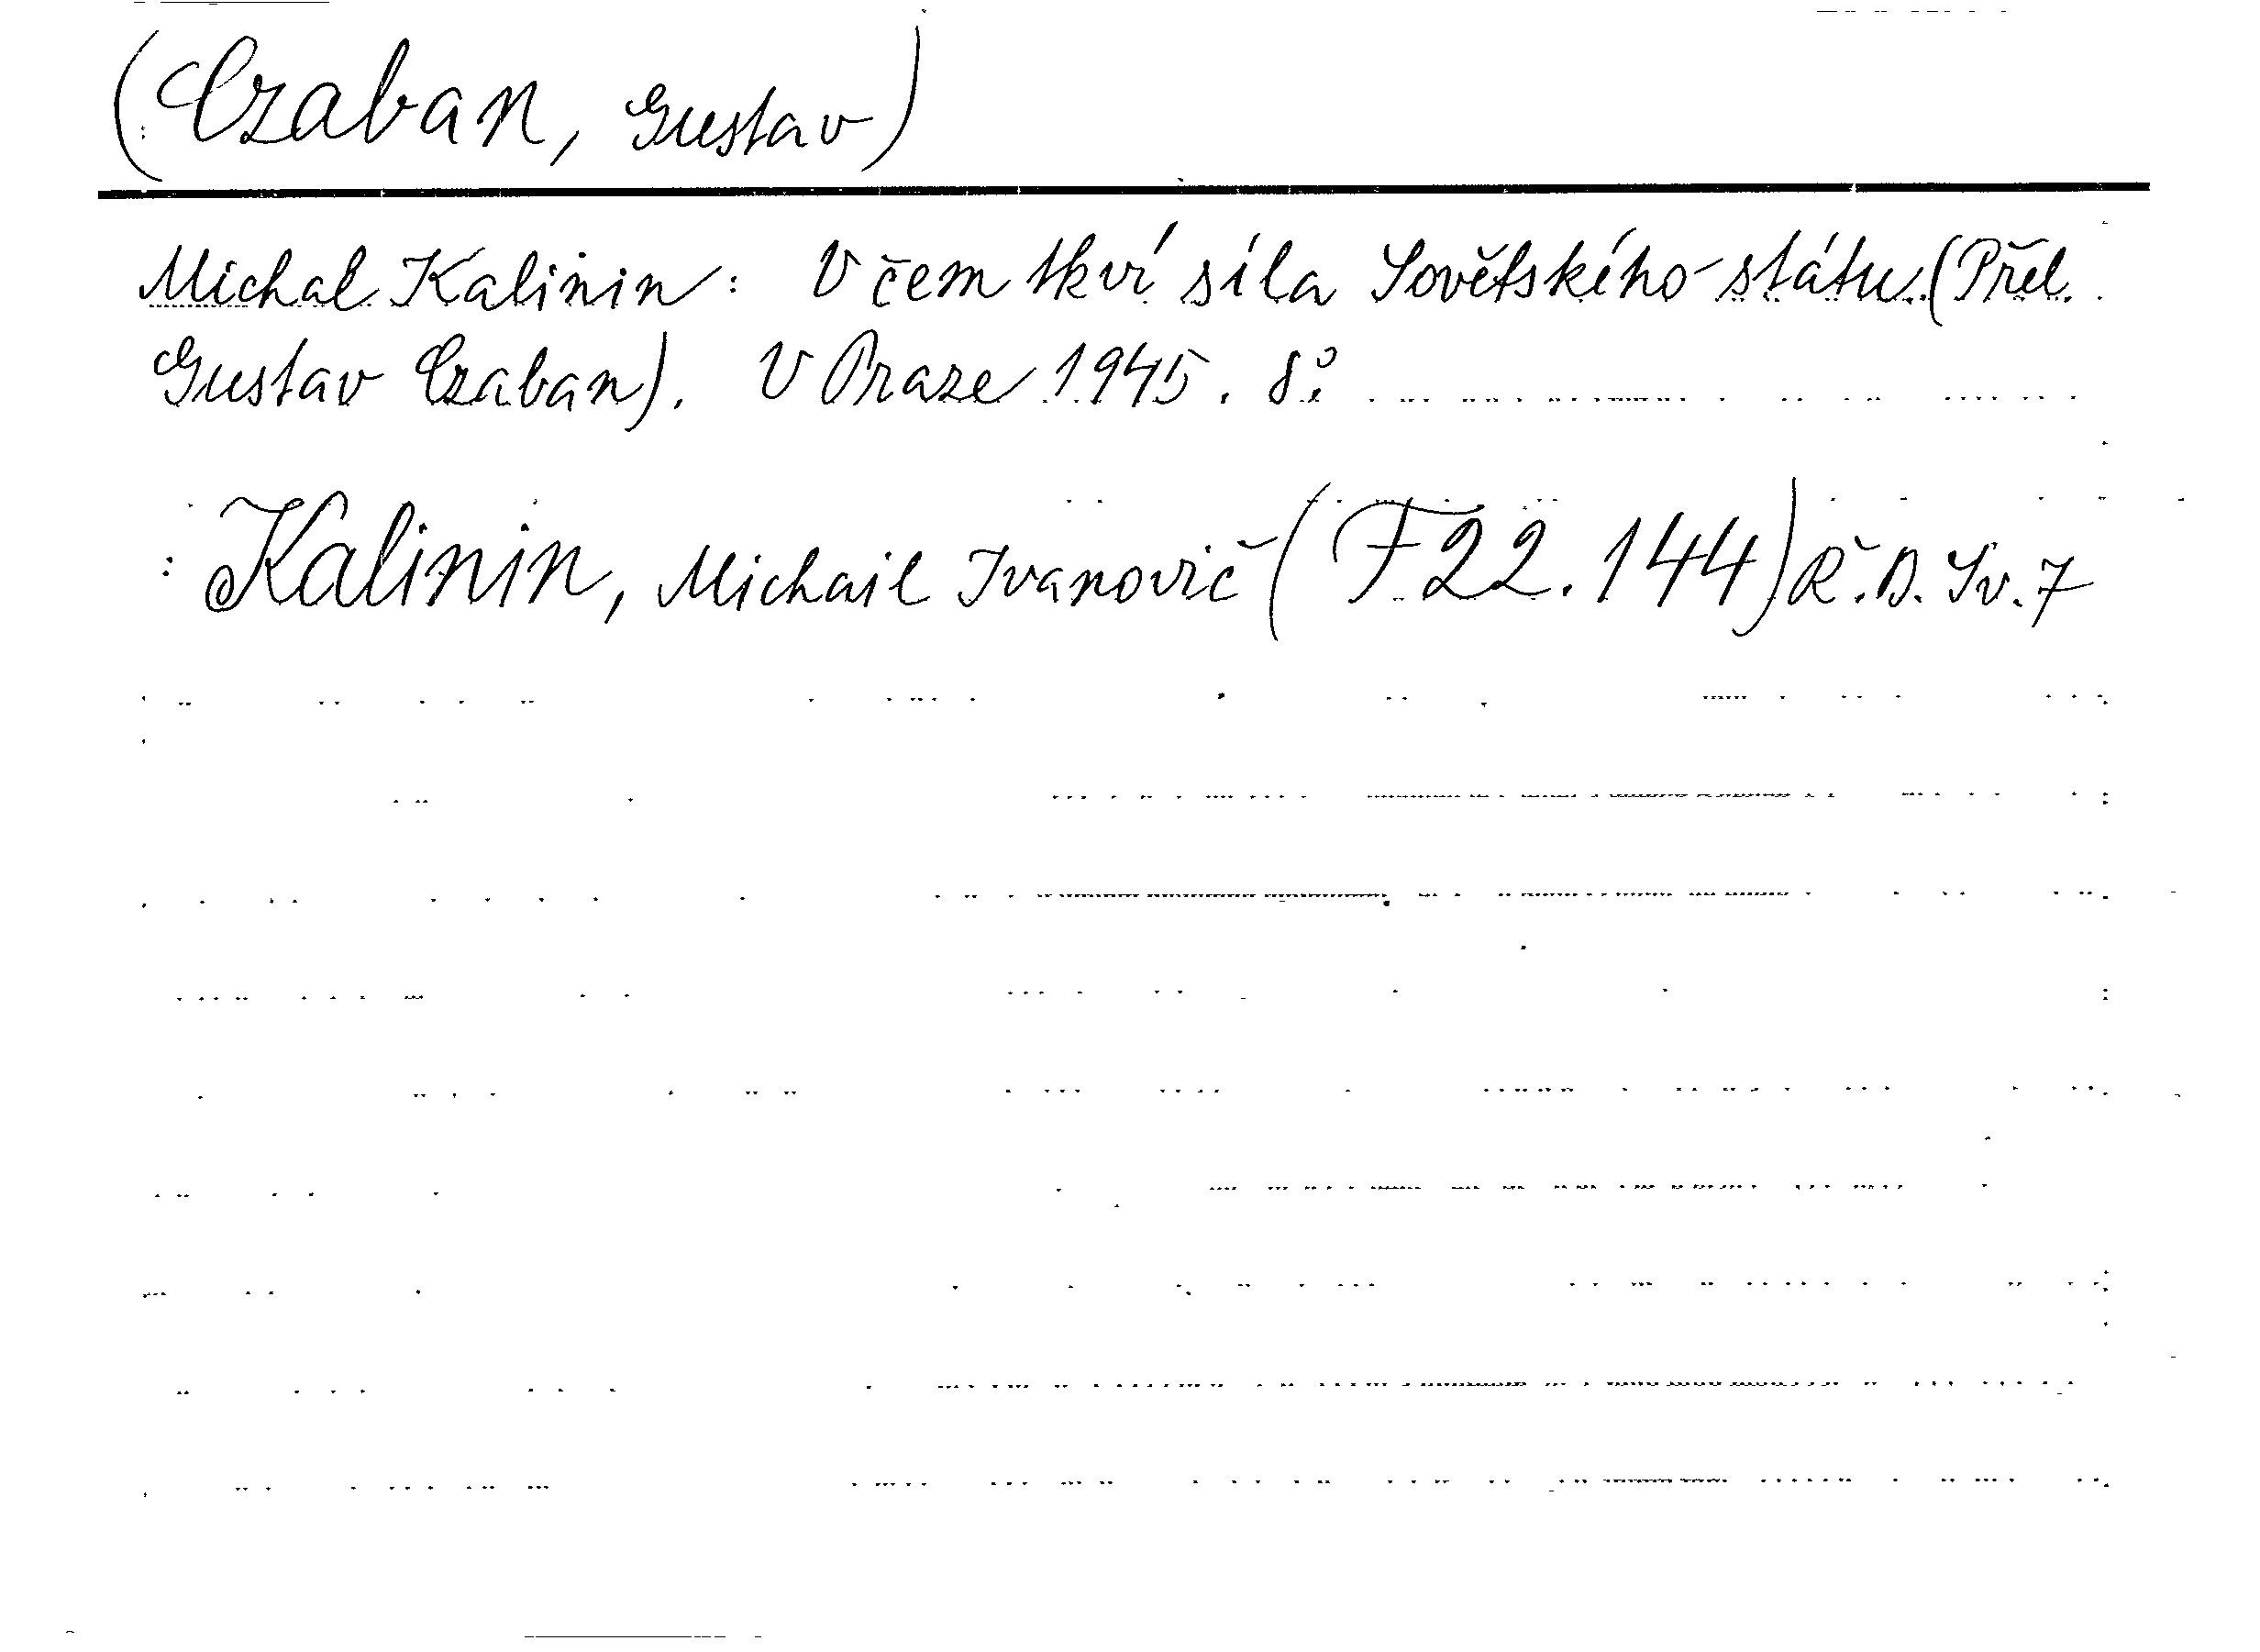 (Czaban, Gustav)
Michal Kalinin: V čem tkví síla Sovětského státu. (Přel.
Gustav Czaban). V Praze 1945. 8°.
: Kalinin, Michail Ivanovič (F 22.144) Ř.D. Sv. 7